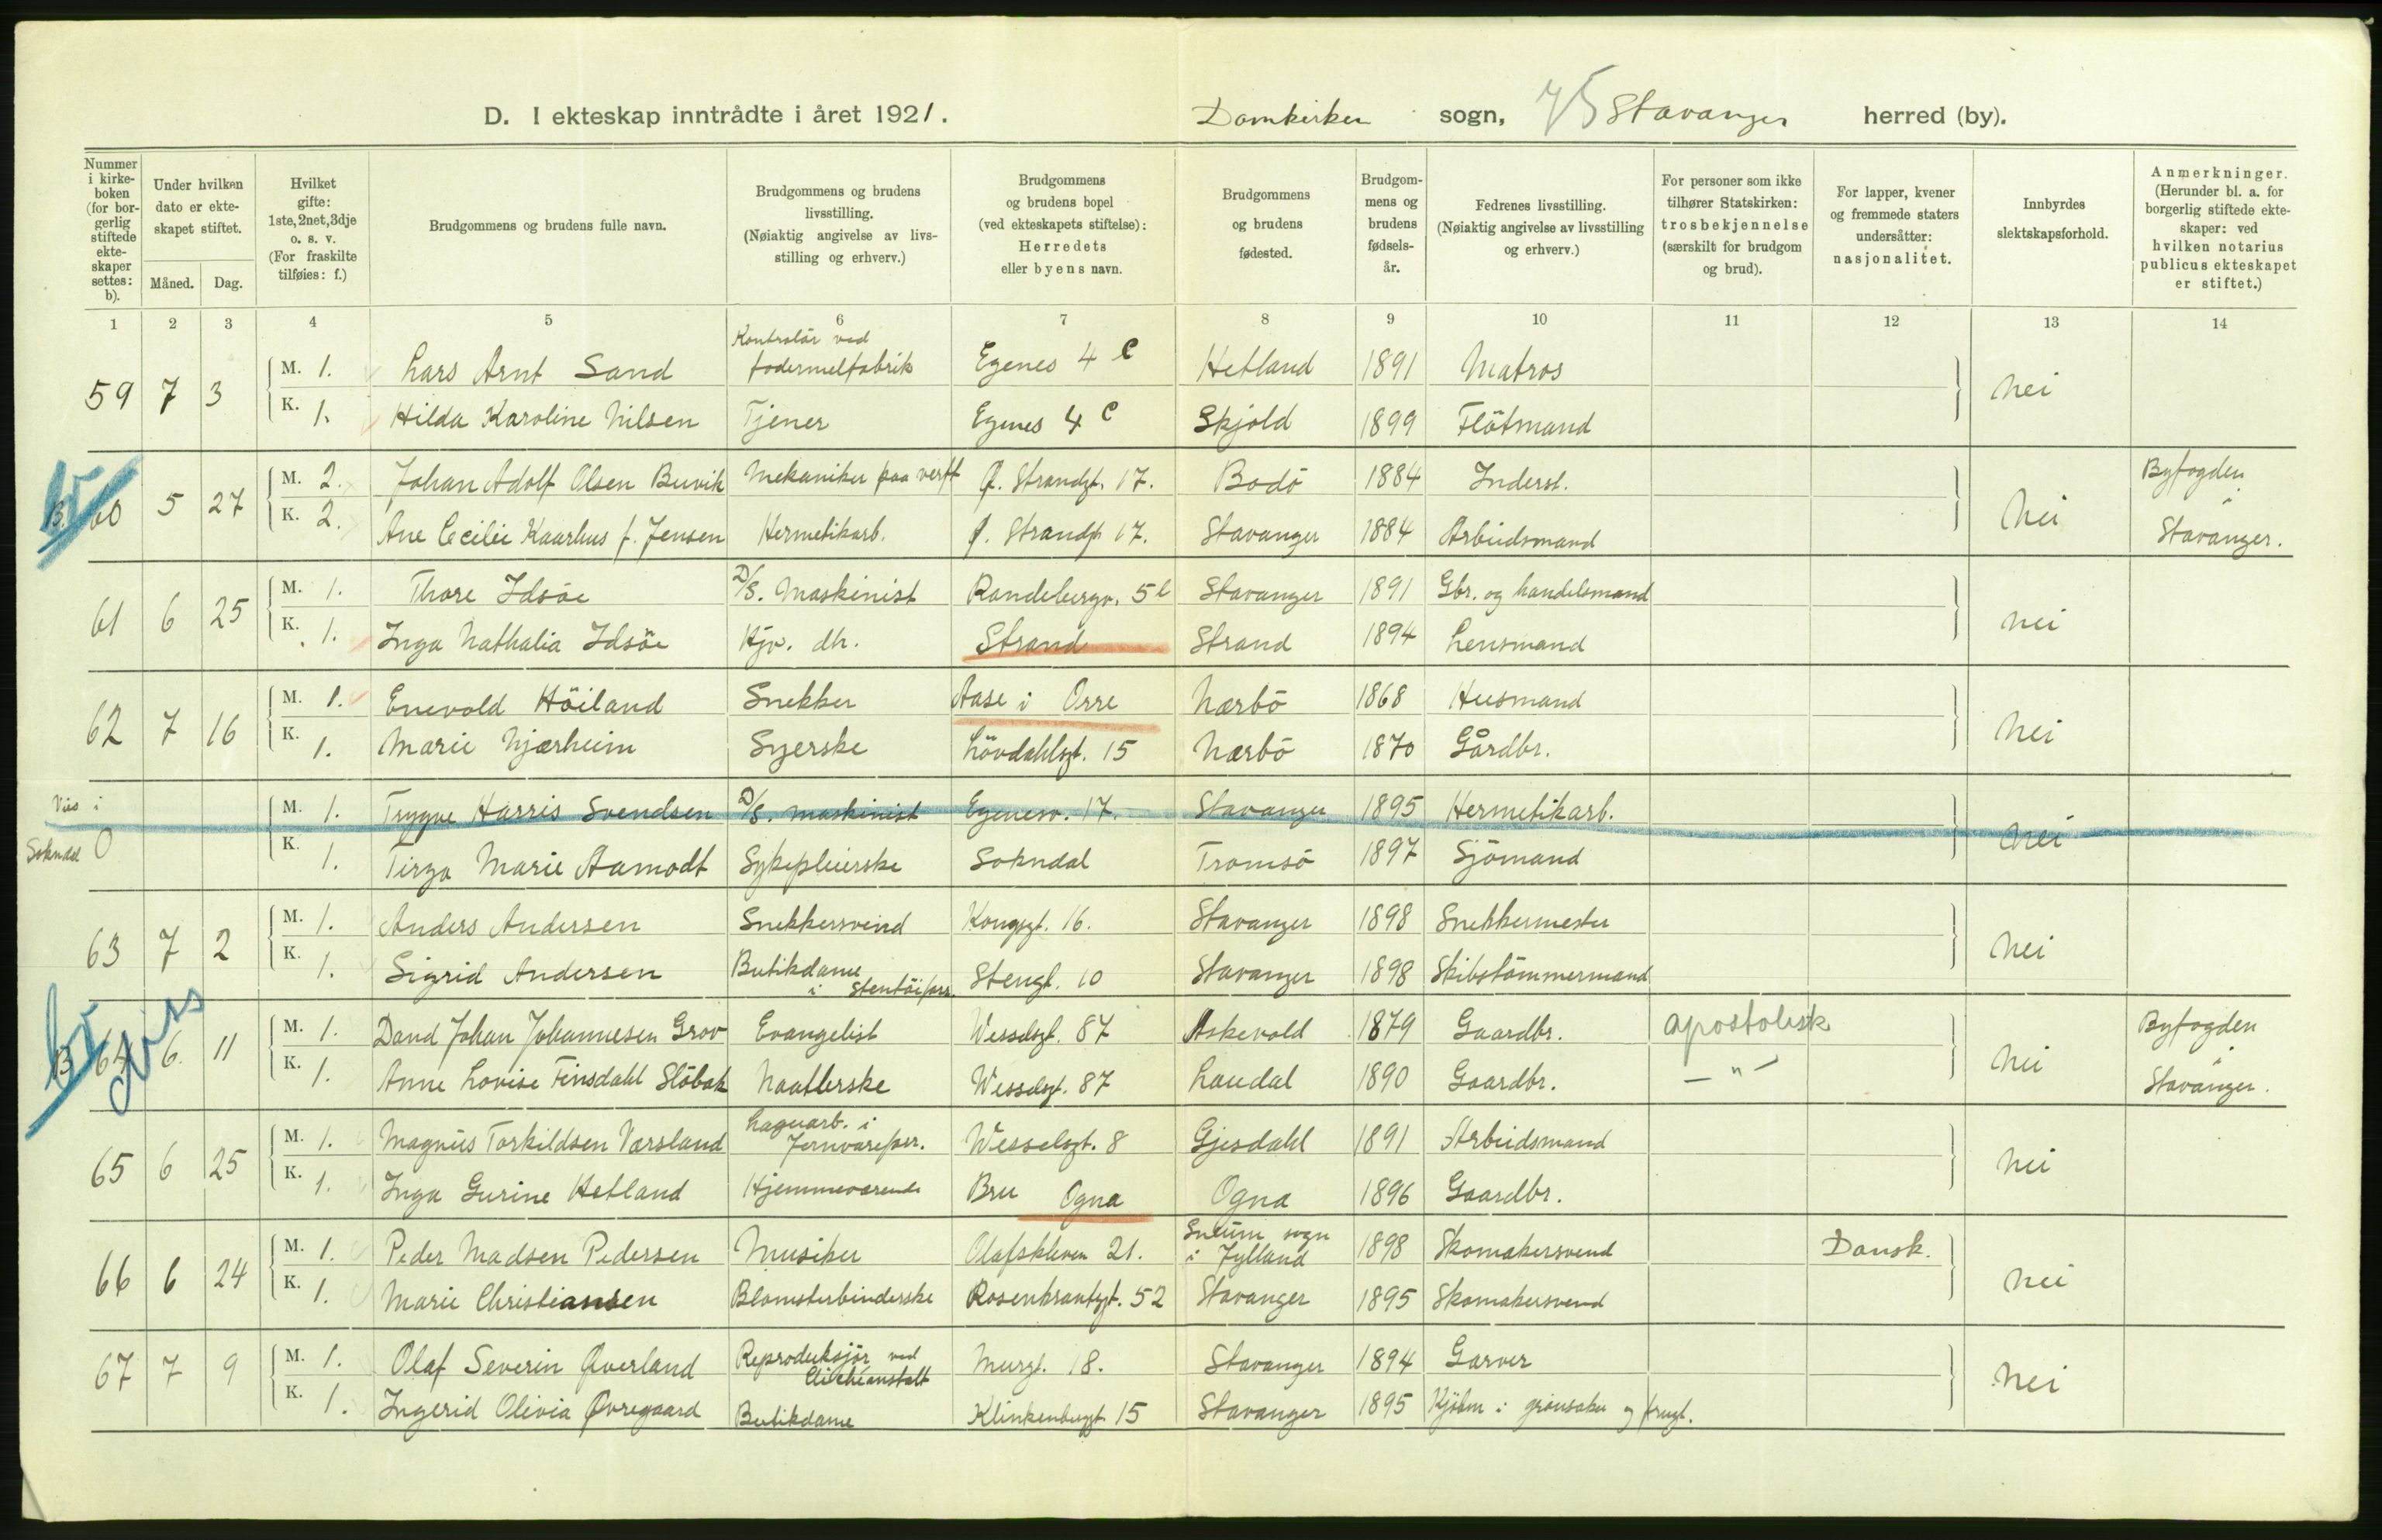 D. I ekteskap inntrådte i året 1921. Domkirken sogn, 75 Stavanger herred (by).
Nummer i kirkeboken (for borgerlig stiftede ekteskaper settes: b).
Under hvilken dato er ekteskapet stiftet.
Måned. Dag.
Hvilket gifte: 1ste, 2net, 3dje o. s. v. (For fraskilte tilføies: f.)
Brudgommens og brudens fulle navn.
Brudgommens og brudens livsstilling. (Nøiaktig angivelse av livsstilling og erhverv.)
Brudgommens og brudens bopel (ved ekteskapets stiftelse): Herredets eller byens navn.
Brudgommens og brudens fødested.
Brudgommens og brudens fødselsår.
Fedrenes livsstilling. (Nøiaktig angivelse av livsstilling og erhverv.)
For personer som ikke tilhører Statskirken: trosbekjennelse (særskilt for brudgom og brud).
For lapper, kvener og fremmede staters undersåtter: nasjonalitet.
Innbyrdes slektskapsforhold.
Anmerkninger. (Herunder bl. a. for borgerlig stiftede ekteskaper: ved hvilken notarius publicus ekteskapet er stiftet.)
1 2 3 4 5 6 7 8 9 10 11 12 13 14
59 7 3 M. 1. Lars Arnt Sand Kontrolör ved fodermelfabrik Egenes 4 C Hetland 1891 Matros nei
K. 1. Hilda Karoline Nilsen Tjener Egenes 4 C Skjold 1899 Flötmand
B. 60 5 27 M. 2. Johan Adolf Olsen Buvik Mekaniker paa verft Ø. Strandgt. 17. Bodö 1884 Inderst. nei Byfogden i
K. 2. Ane Cecilie Kaarhus f. Jensen Hermetikarb. Ø. Strandgt. 17. Stavanger 1884 Arbeidsmand Stavanger.
61 6 25 M. 1. Thore Idsöe D/S. Maskinist Randebergv. 5 Stavanger 1891 Gbr. og handelsmand nei
K. 1. Inga Nathalia Idsöe Hjv. dtr. Strand Strand 1894 Lensmand
62 7 16 M. 1. Enevold Höiland Snekker Aase i Orre Nærbö 1868 Husmand nei
K. 1. Marie Njærheim Syerske Lövdahlsgt. 15 Nærbö 1870 Gårdbr.
Vies i M. 1. Trygve Harris Svendsen D/S. maskinist Egenesv. 17. Stavanger 1895 Hermetikarb. nei
Sokndal 0 K. 1. Tirza Marie Aamodt Sykepleierske Sokndal Tromsö 1897 Sjömand
63 7 2 M. 1. Anders Andersen Snekkersvend Kongsgt. 16. Stavanger 1898 Snekkermester nei
K. 1. Sigrid Andersen Butikdame i Stentöiforr. Stengt. 10 Stavanger 1898 Skibstömmermand
B. 64 6. 11 M. 1. David Johan Johannesen Grov Evangelist Wesselsgt. 87 Askevold 1879 Gaardbr. apostolisk nei Byfogden i
K. 1. Anne Lovise Finsdahl Slöbak Naatlerske Wesselsgt. 87 Laudal 1890 Gaardbr. — " — Stavanger.
65 6 25 M. 1. Magnus Torkildsen Varsland Lagerarb. i Jernvareforr. Wesselsgt. 8 Gjesdahl 1891 Arbeidsmand nei
K. 1. Inga Gurine Hetland Hjemmeværende Bru Ogna Ogna 1896 Gaardbr.
66 6 24 M. 1. Peder Madsen Pedersen Musiker Olafskleven 21. Sneum sogn i Jylland 1898 Skomakersvend Dansk. nei
K. 1. Marie Christiansen Blomsterbinderske Rosenkrantzgt. 52 Stavanger 1895 Skomakersvend
67 7 9 M. 1. Olaf Severin Øverland Reproduksjör ved Clichéanstalt Murgt. 18. Stavanger 1894 Garver nei
K. 1. Ingerid Olivia Øvregaard Butikdame Klinkenbergt. 15 Stavanger 1895 Kjöbm i grönsaker og frugt.